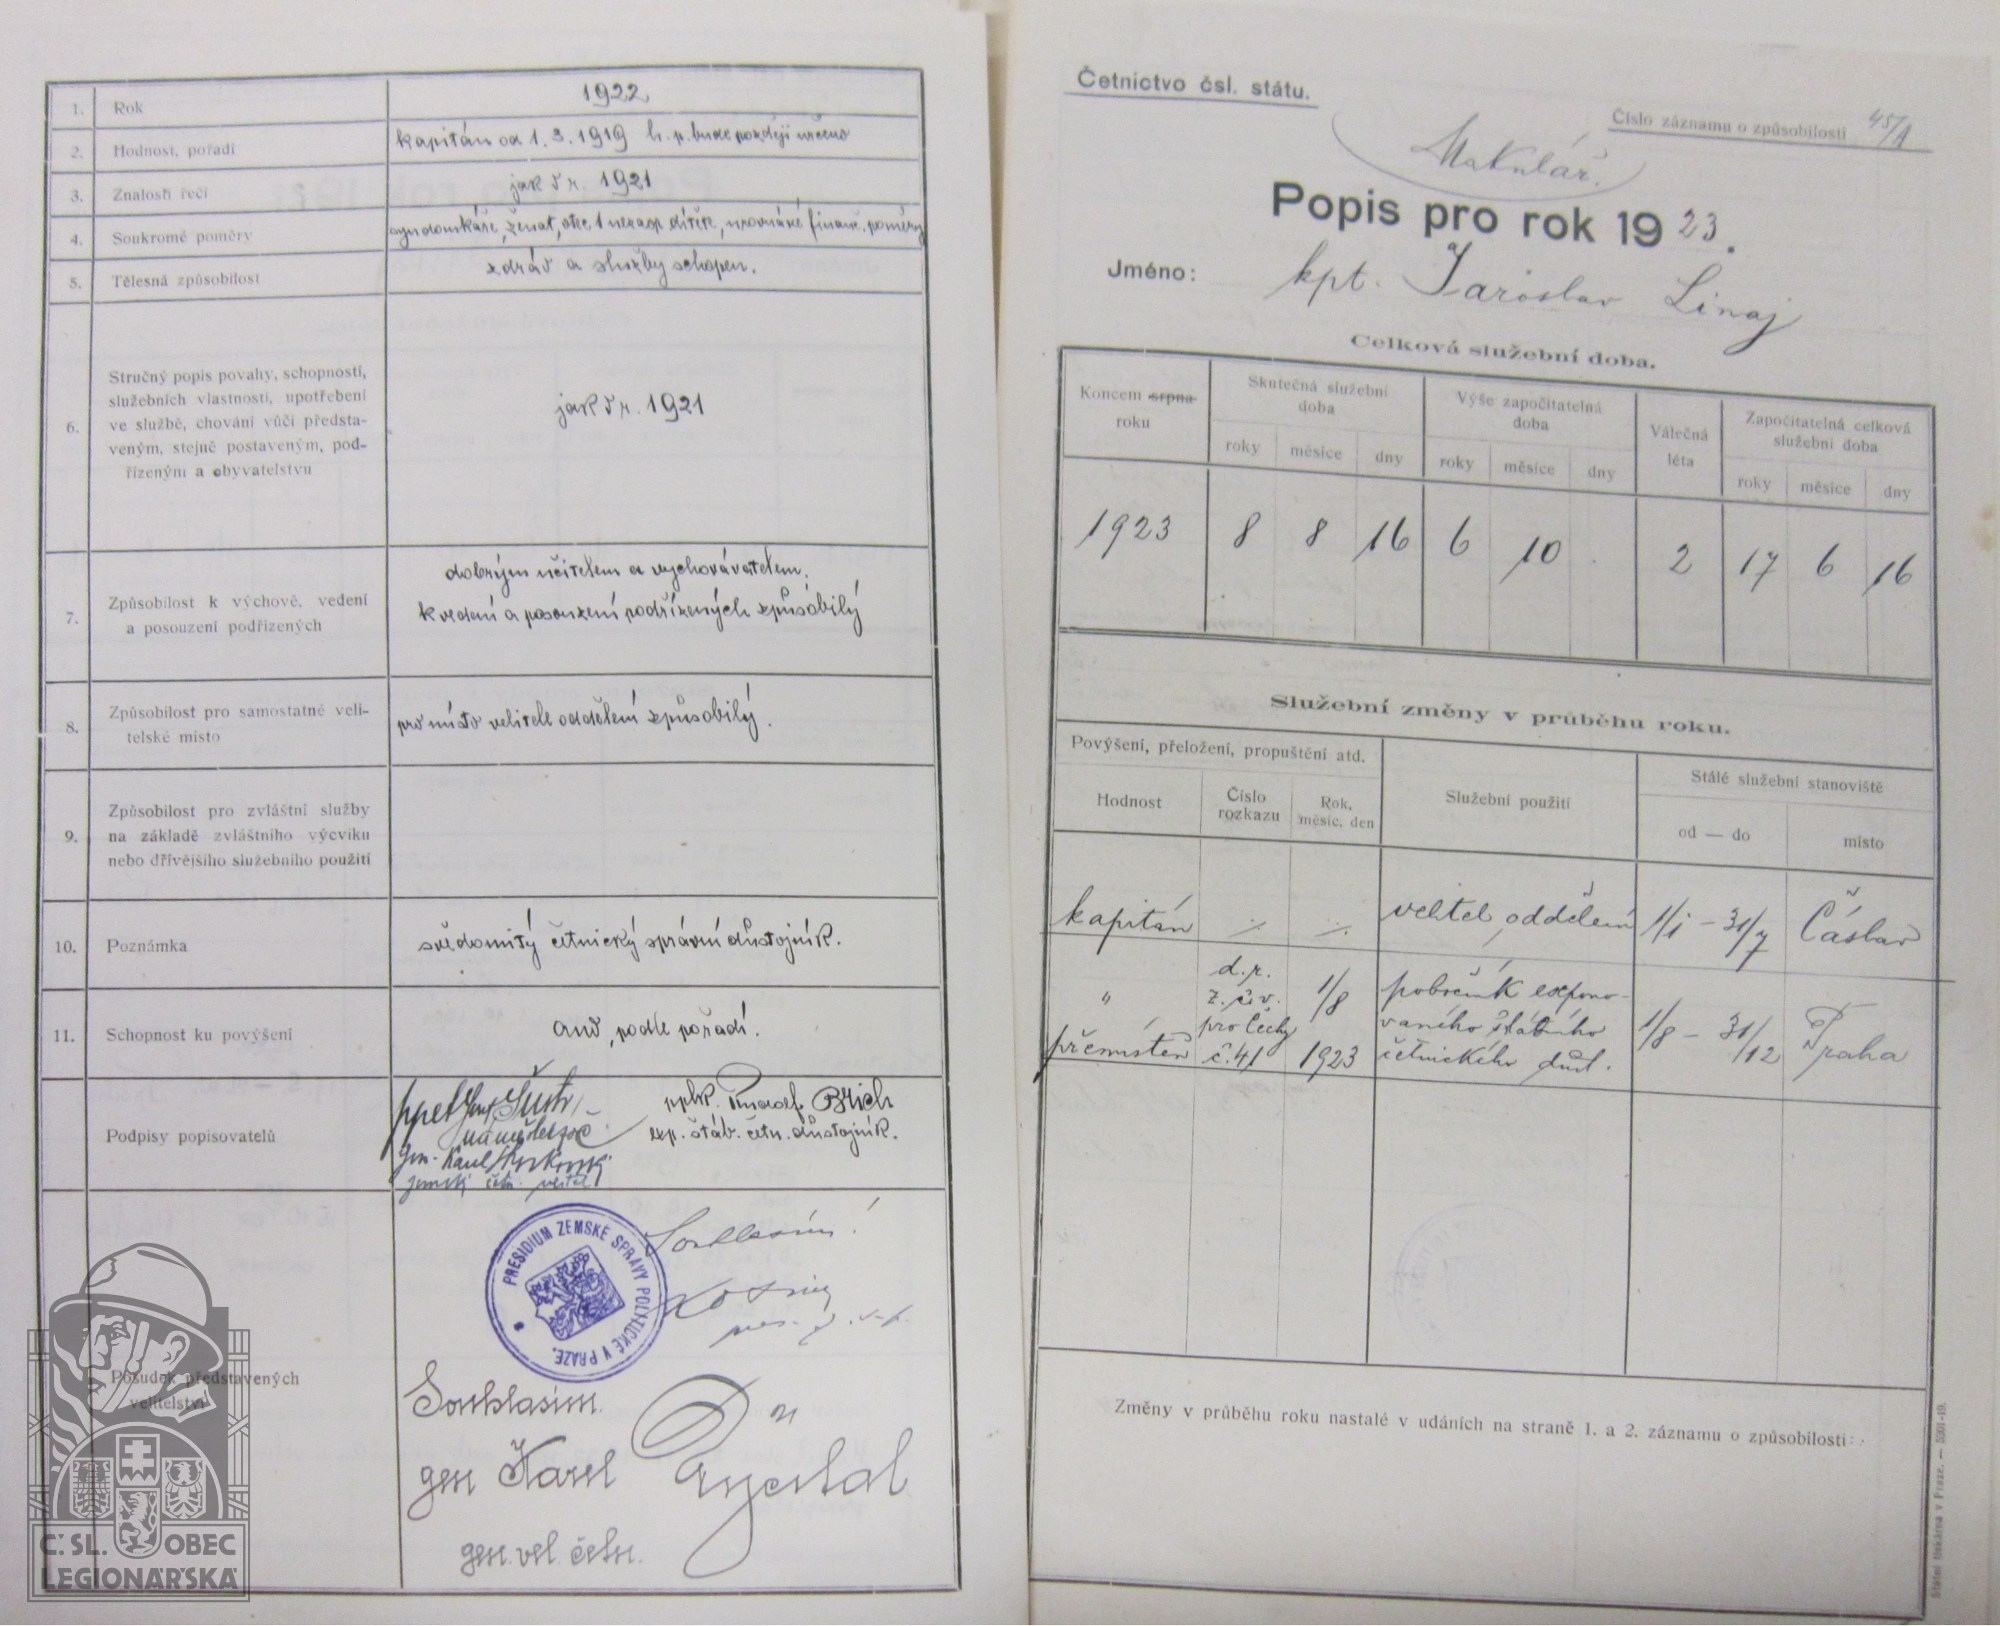 1. Rok 1922
2. Hodnost, pořadí kapitán od 1. 3. 1919 h. p. bude později určeno
3. Znalosti řečí jak v r. 1921
4. Soukromé poměry syn domkáře, ženat, otec 1 nezaop. dítěte, urovnané financ. poměry
5. Tělesná způsobilost zdráv a služby schopen.
6. Stručný popis povahy, schopností,
služebních vlastností, upotřebení
ve službě, chování vůči představeným,
stejně postaveným, podřízeným
a obyvatelstvu
jak v r. 1921
7. Způsobilost k výchově, vedení
a posouzení podřízených
dobrým učitelem a vychovávatelem,
k vedení a posouzení podřízených způsobilý
8. Způsobilost pro samostatné velitelské
místo
pro místo velitele oddělení způsobilý.
9. Způsobilost pro zvláštní služby
na základě zvláštního výcviku
nebo dřívějšího služebního použití
10. Poznámka svědomitý četnický správní důstojník.
11. Schopnost ku povýšení ano, podle pořadí.
Podpisy popisovatelů
pplk.
exp. štáb. četn. důstojník.
gen. Karel
zemský četn. velitel
PRESIDIUM ZEMSKÉ SPRÁVY POLITICKÉ V PRAZE.
Souhlasím!
Posudek představených
velitelství
Souhlasím.
gen Karel
gen. vel. četn.
Č. SL. OBEC
LEGIONÁŘSKÁ
Četnictvo čsl. státu.
Číslo záznamu o způsobilosti 45/A
Makulář.
Popis pro rok 1923.
Jméno: kpt. Jaroslav Linaj
Celková služební doba.
Koncem srpna
roku
Skutečná služební
doba
Výše započitatelná
doba
Válečná
léta
Započitatelná celková
služební doba
roky měsíce dny roky měsíce dny roky měsíce dny
1923 8 8 16 6 10 . 2 17 6 16
Služební změny v průběhu roku.
Povýšení, přeložení, propuštění atd.
Služební použití
Stálé služební stanoviště
Hodnost
Číslo
rozkazu
Rok,
měsíc, den
od — do
místo
kapitán ./. ./. velitel oddělení 1/1 - 31/7 Čáslav
" d. r.
z. č. v.
pro Čechy
č. 41
přemístěn
1/8
1923
pobočník expono-
vaného štábního
četnického důst.
1/8 - 31/12 Praha
Změny v průběhu roku nastalé v udáních na straně 1. a 2. záznamu o způsobilosti:
Státní tiskárna v Praze. — 5301-19.